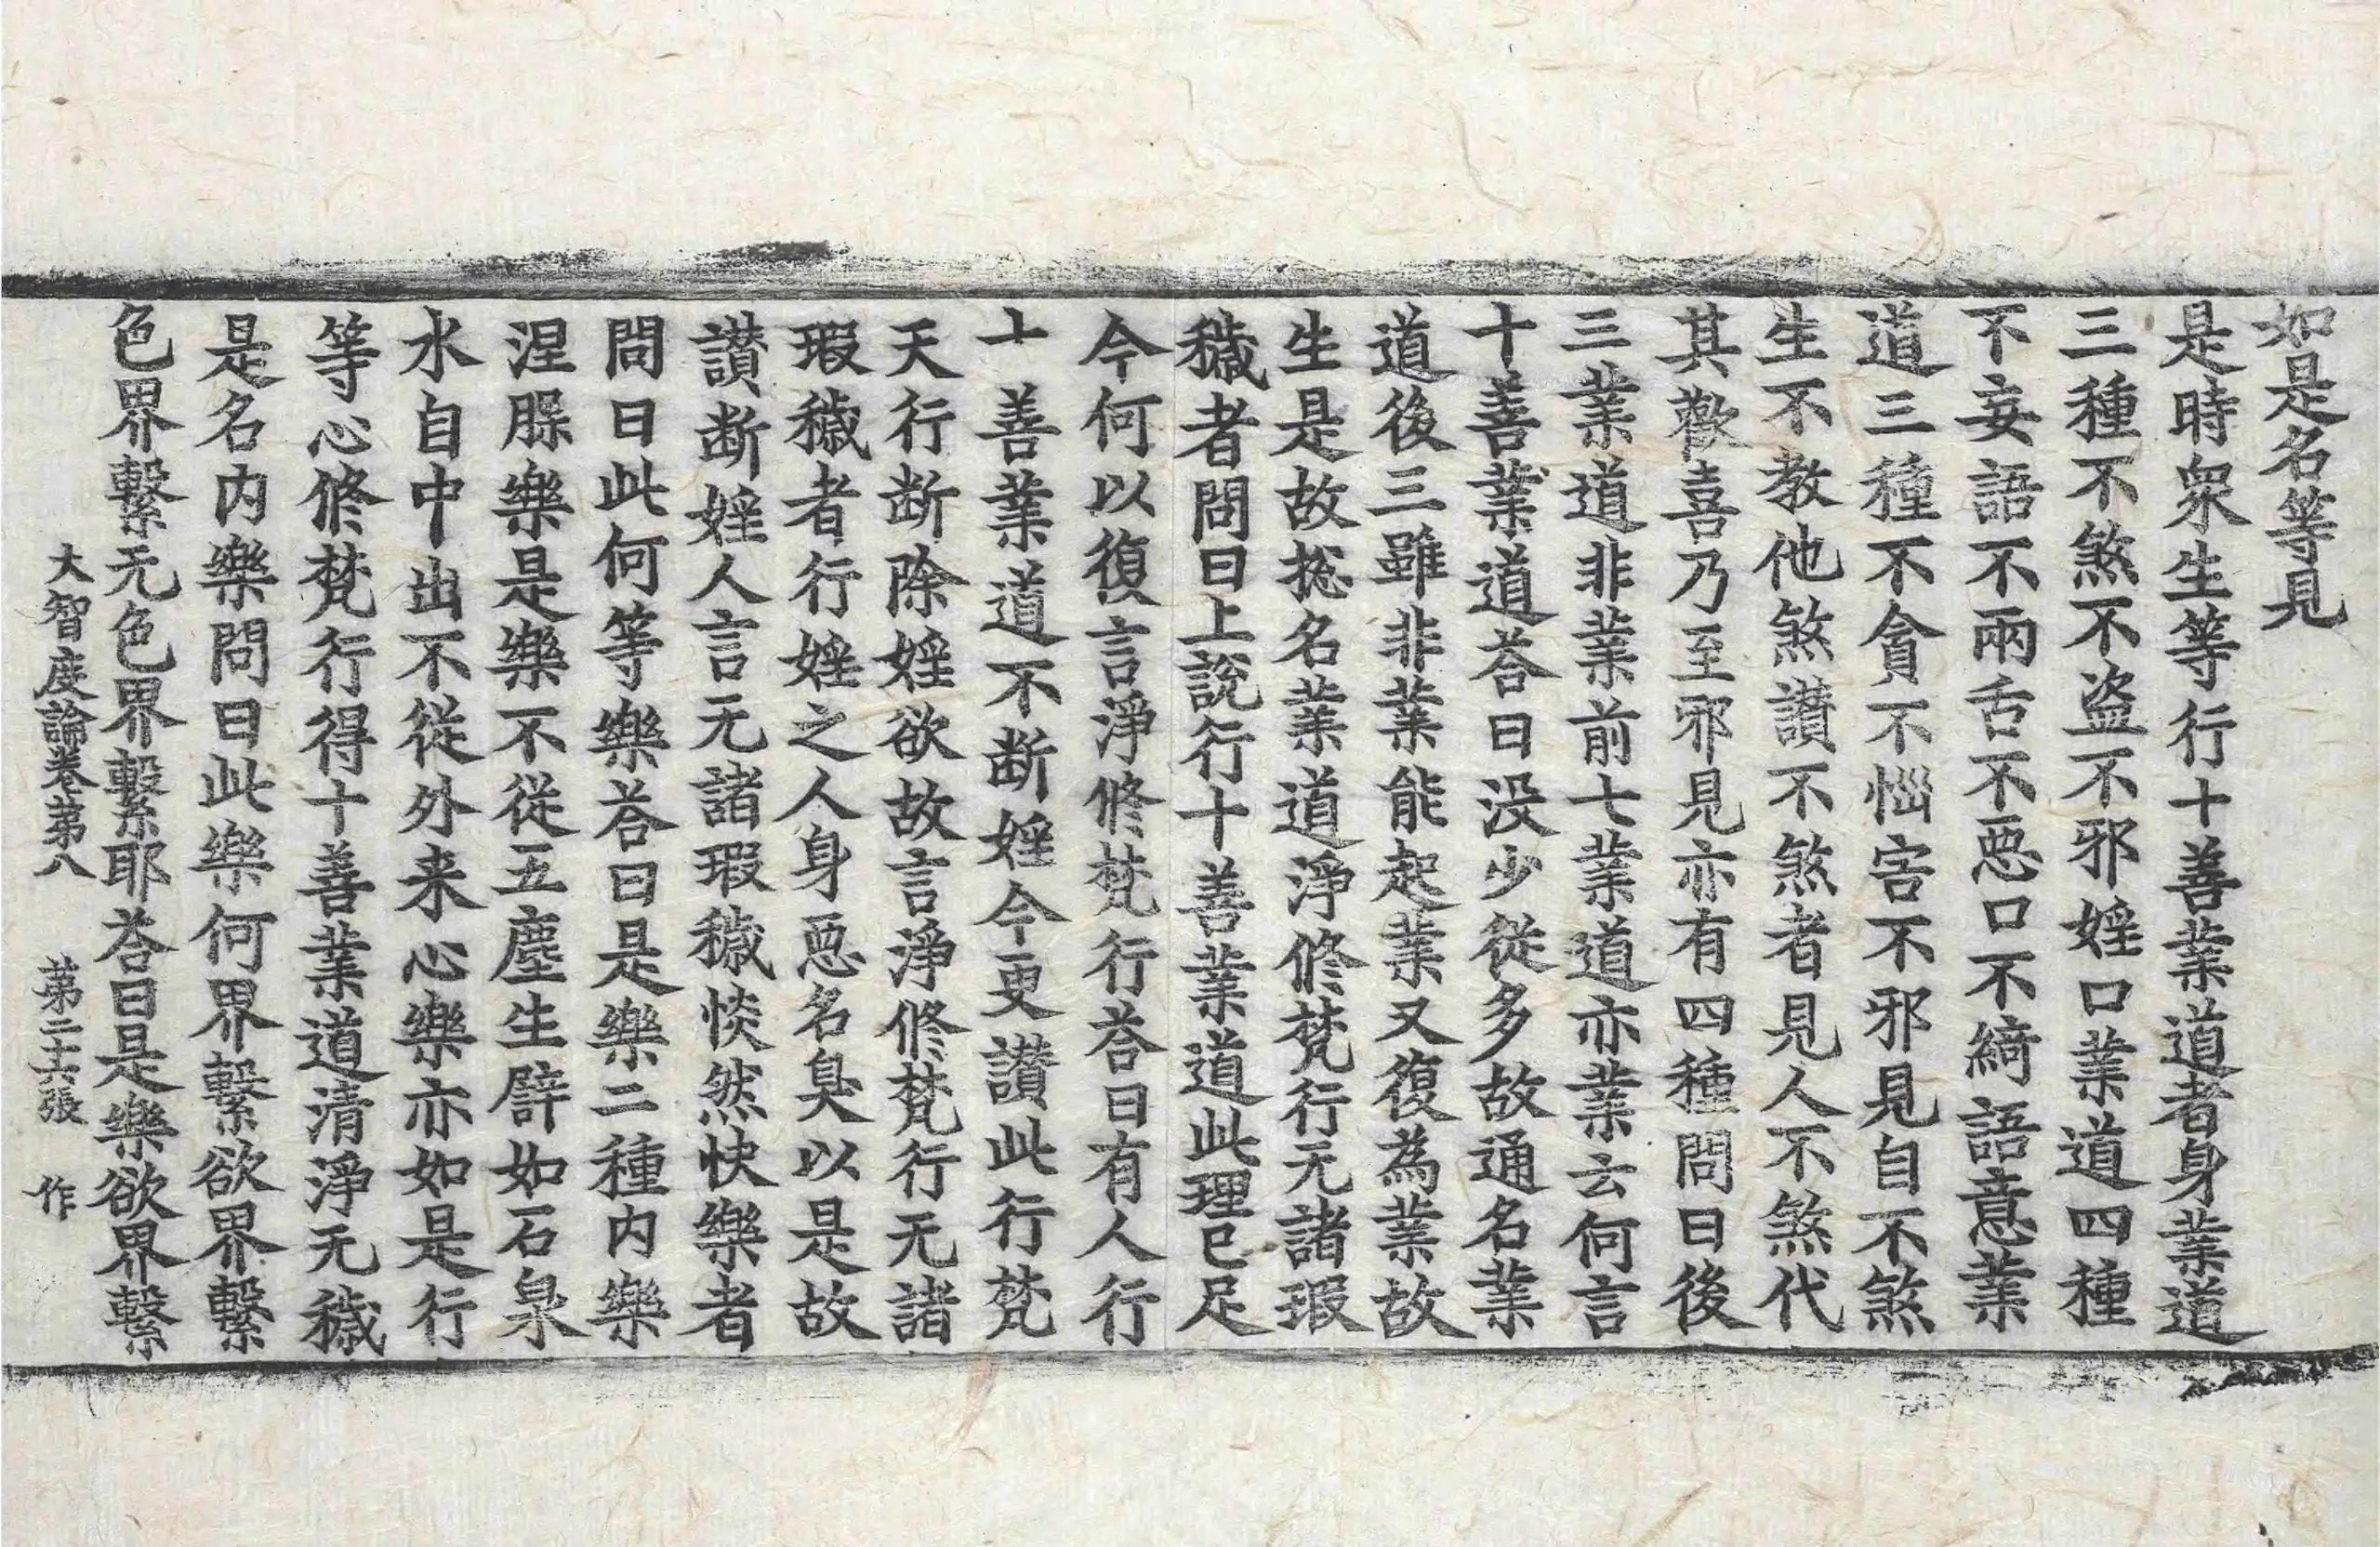 如是名等見
是時衆生等行十善業道者身業道
三種不煞不盗不邪婬口業道四種
不妄語不兩舌不悪口不綺語意業
道三種不貪不惱害不邪見自不煞
生不教他煞讃不煞者見人不煞代
其歡喜乃至邪見亦有四種問曰後
三業道非業前七業道亦業云何言
十善業道荅曰没少從多故通名業
道後三雖非業能起業又復為業故
生是故捴名業道淨修梵行无諸瑕
穢者問曰上說行十善業道此理已足
今何以復言淨修梵行荅曰有人行
十善業道不断婬今更讃此行梵
天行断除婬欲故言淨修梵行无諸
瑕穢者行婬之人身悪名臭以是故
讃断婬人言无諸瑕穢惔然快樂者
問曰此何等樂荅曰是樂二種内樂
涅槃樂是樂不從五塵生譬如石泉
水自中出不從外来心樂亦如是行
等心修梵行得十善業道清淨无穢
是名内樂問曰此樂何界繫欲界繫
色界繫无色界繫耶荅曰是樂欲界繫
大智度論卷第八 第二十六張 作